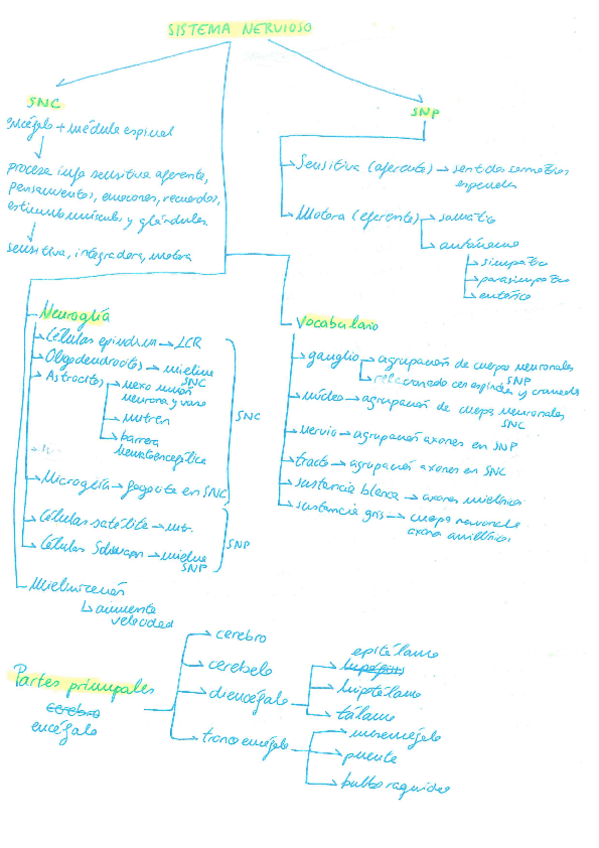 SISTEMA NERVIOSO
SNC
encéfalo + médula espinal
procesa info sensitiva aferente,
pensamientos, emociones, recuerdos,
estimula músculos y glándulas
sensitiva, integradora, motora
SNP
Sensitiva (aferente) → sentidos somáticos
especiales
Motora (eferente) → somático
autónomo
simpático
parasimpático
entérico
Neuroglía
Células → LCR
Oligodendrocitos → mielina
SNC
Astrocitos → nexo unión
neurona y vaso
nutren
barrera
hematoencefálica
Microglía → fagocita en SNC
SNC
Células satélite → nutr.
Células Schwann → mielina
SNP
SNP
Mielinización
↳ aumenta
velocidad
Vocabulario
ganglio → agrupación de cuerpos neuronales
SNP
relacionado con espinales y craneales
núcleo → agrupación de cuerpos neuronales
SNC
nervio → agrupación axones en SNP
tracto → agrupación axones en SNC
sustancia blanca → axones mielínicos
sustancia gris → cuerpos neuronales
axones amielínicos
Partes principales
cerebro
encéfalo
cerebro
cerebelo
diencéfalo
epitálamo
hipotálamo
tálamo
tronco encéfalo
mesencéfalo
puente
bulbo raquídeo